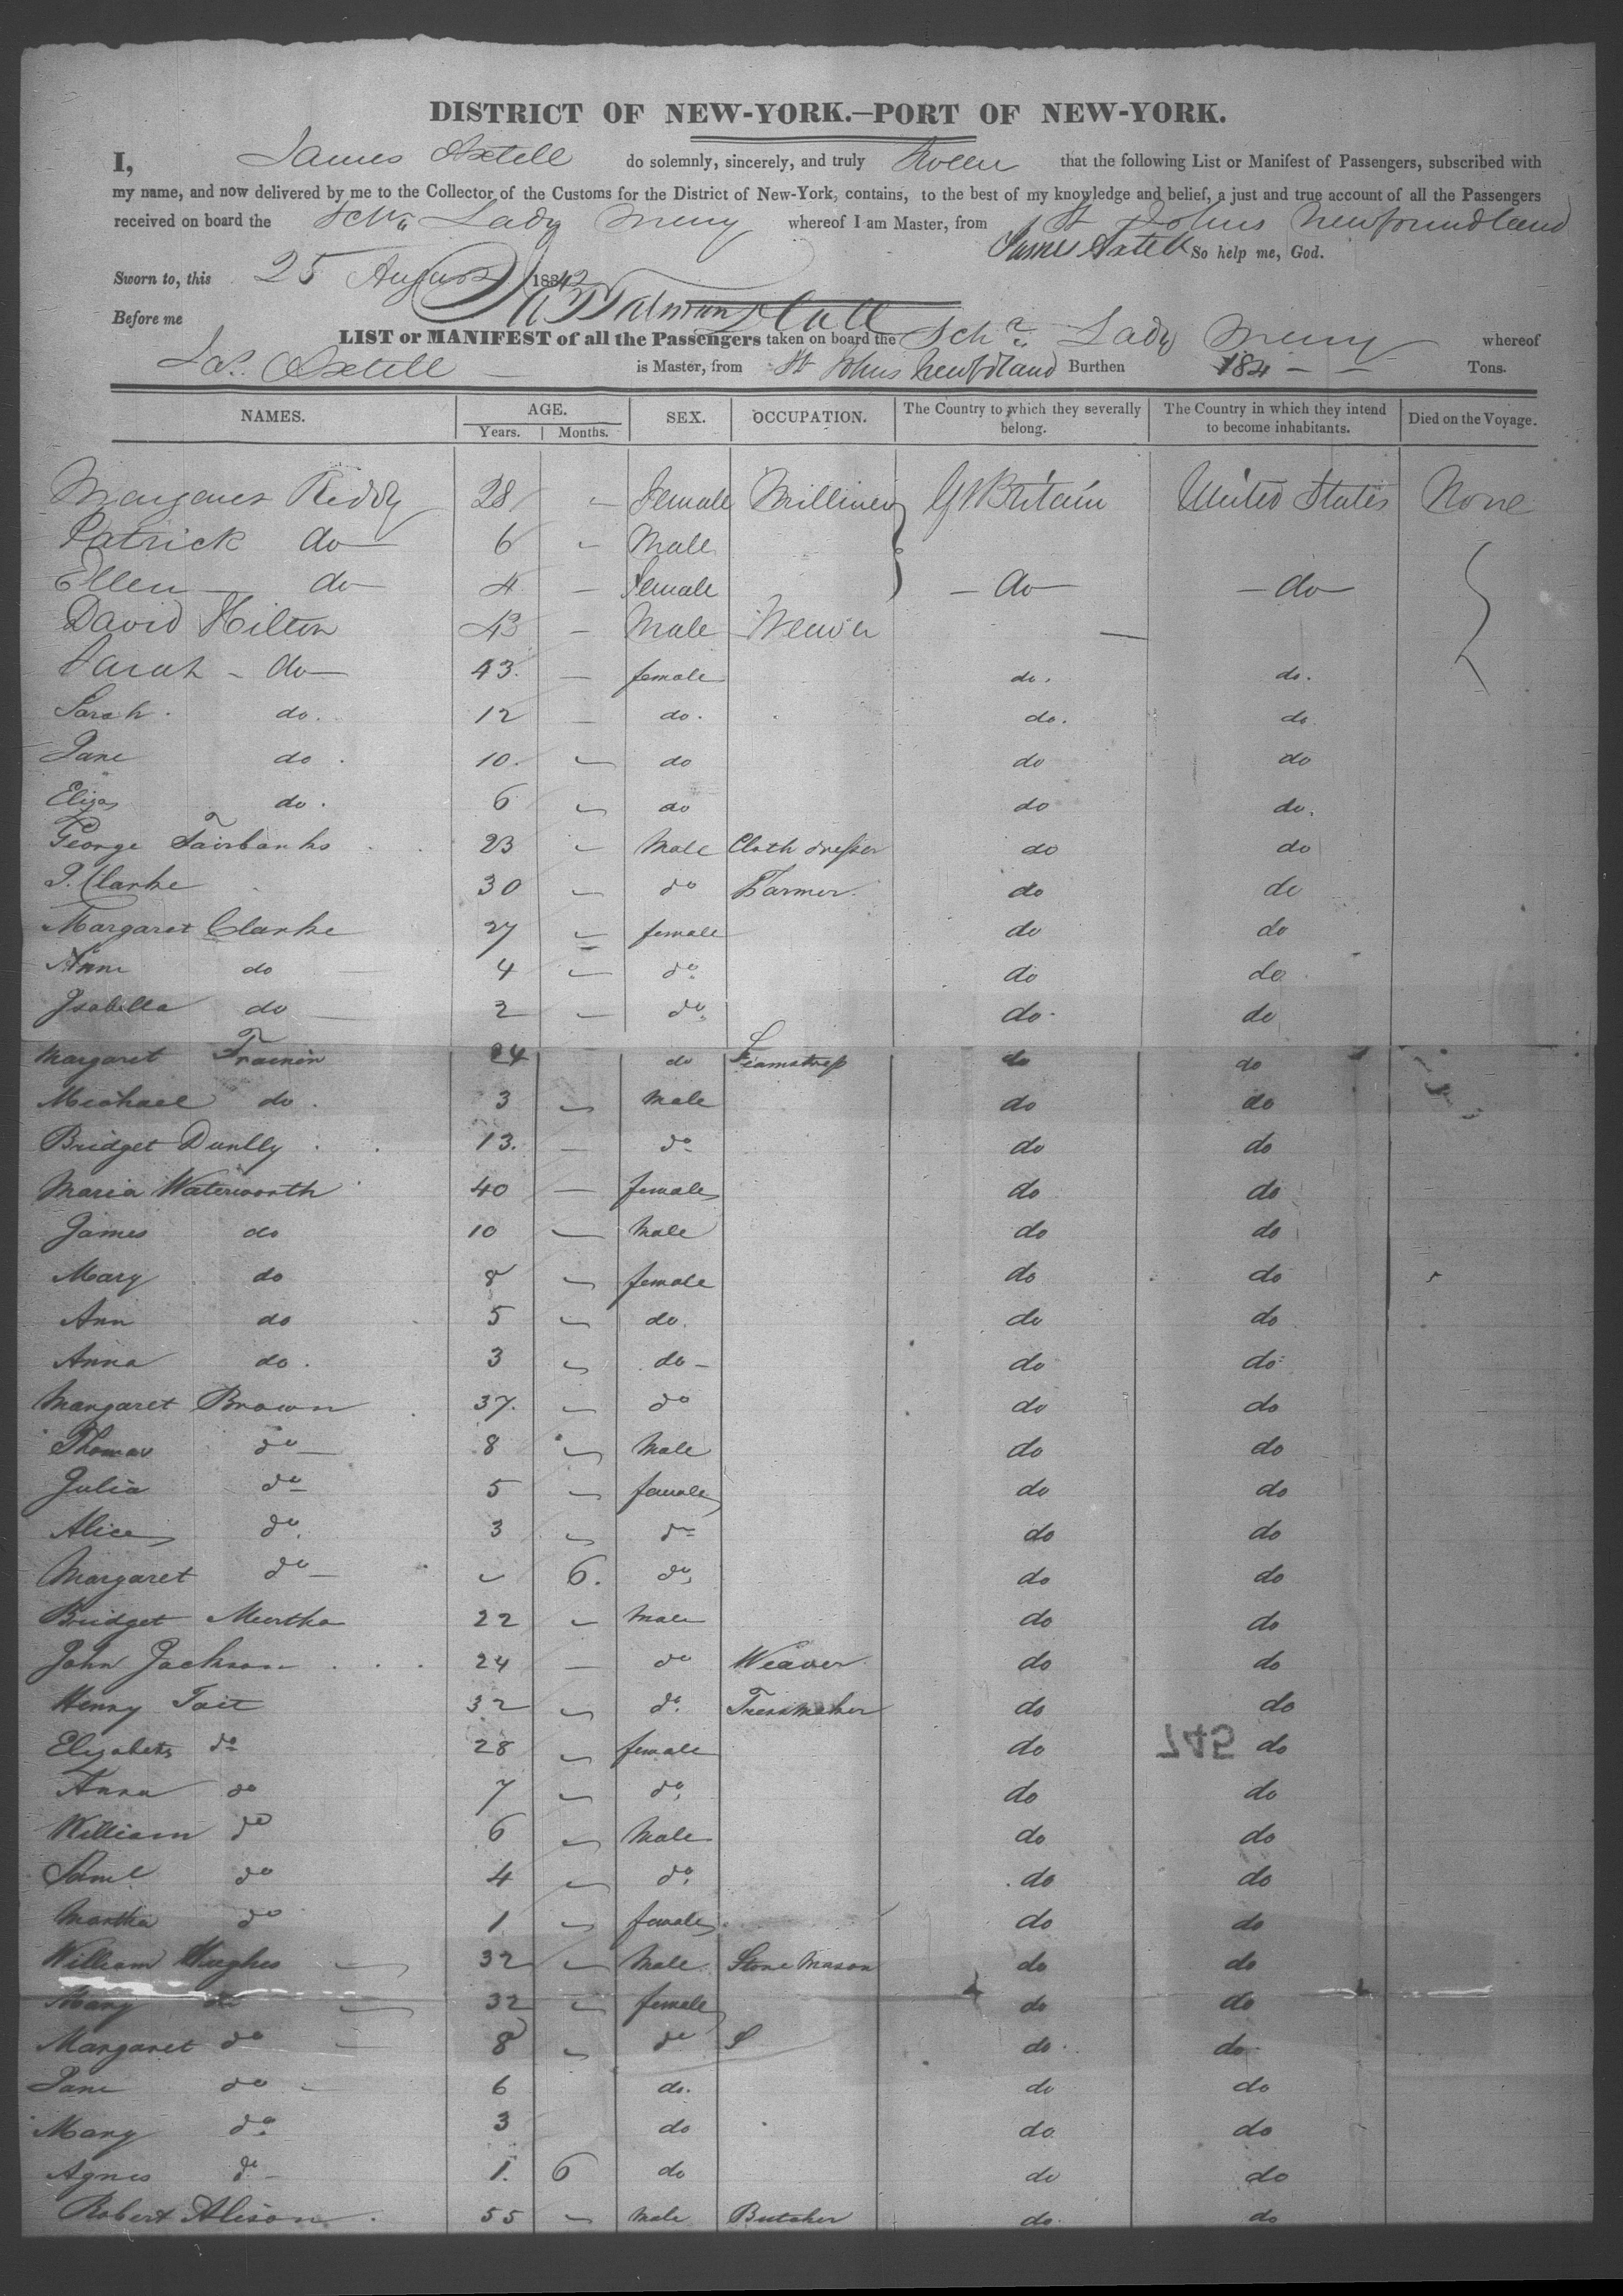 DISTRICT OF NEW-YORK.—PORT OF NEW-YORK.
I, James Axtell do solemnly, sincerely, and truly that the following List or Manifest of Passengers, subscribed with
my name, and now delivered by me to the Collector of the Customs for the District of New-York, contains, to the best of my knowledge and belief, a just and true account of all the Passengers
received on board the Schr Lady whereof I am Master, from St Johns Newfoundland
James Axtell So help me, God.
Sworn to, this 25 August 1842
Before me
LIST or MANIFEST of all the Passengers taken on board the Schr Lady whereof
Jas. Axtell is Master, from St Johns Newfdland Burthen 184 Tons.
NAMES. AGE. Years. Months. SEX. OCCUPATION. The Country to which they severally belong. The Country in which they intend to become inhabitants. Died on the Voyage.
Margaret Reddy 28 - Female Milliner Gt Britain United States None
Patrick do 6 - Male
Ellen do 4 - Female do do
David Hilton 43 - Male Weaver
Sarah - do 43. - female do. do.
Sarah. do. 12 - do. do. do.
Jane do. 10. - do do do
Eliza do. 6 - do do do.
George Fairbanks 23 - Male Cloth dresser do do
P. Clarke 30 - do Farmer. do do
Margaret Clarke 27 - female do do
Ann do 4 - do do do
Isabella do 2 - do do do
Margaret Trainin 24 do Seamstress do do
Michael do. 3 - Male do do
Bridget 13. - do do do
Maria Waterworth 40 - female do do
James do 10 - Male do do
Mary do 8 - female do do
Ann do 5 - do. do do
Anna do. 3 - do do do
Margaret Brown 37. - do do do
Thomas do 8 - Male do do
Julia do 5 - female do do
Alice do. 3 - do do do
Margaret do - 6. do do do
Bridget Murtha 22 - Male do do
John Jackson 24 - do Weaver do do
Henry Tait 32 - do. do do
Elizabeth do 28 - female do do
547
Anna do 7 - do. do do
William do 6 - Male do do
Saml do 4 - do. do do
Martha do 1 - female do do
William Hughes 32 - Male Stone Mason do do
Mary do 32 - female do do
Margaret do 8 - do S do do
Jane do 6 do. do do
Mary do. 3 do do do
Agnes do 1. 6 do do do
Robert Alison 55 - Male Butcher do do